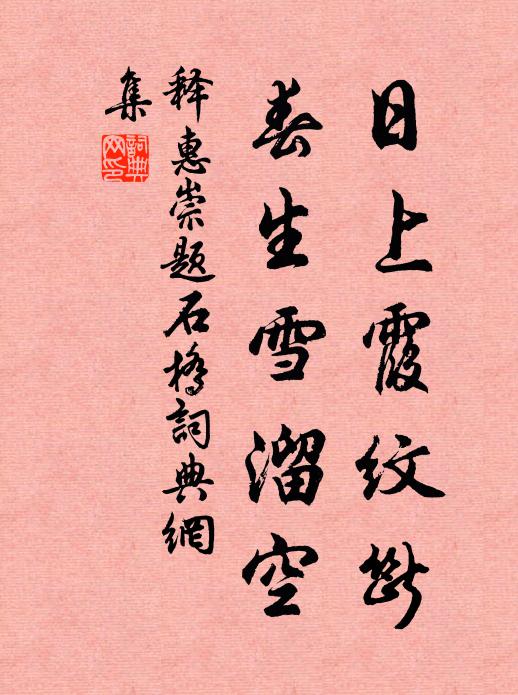 日上霞纹断
春生雪溜空
释惠崇题石桥詞典網
集
詞典
网印